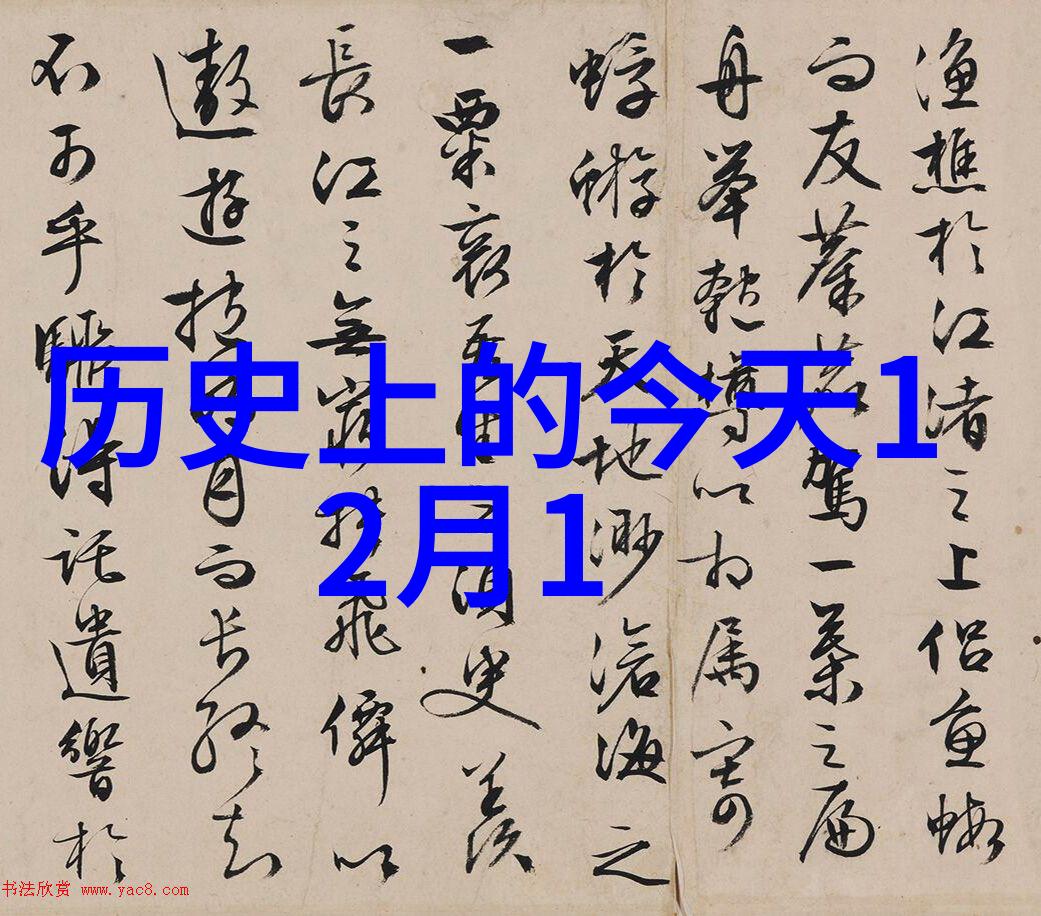 历史上的今天1
2月1
漁樵於江渚之上侶魚蝦
而友麋鹿駕一葉之扁
舟舉匏樽以相属寄
蜉蝣於天地渺滄海之
一粟哀吾生之須臾羨
長江之無窮挾飛僊以
遨遊抱明月而長終知
不可乎驟得託遺響於
书法欣赏 www.yac8.com